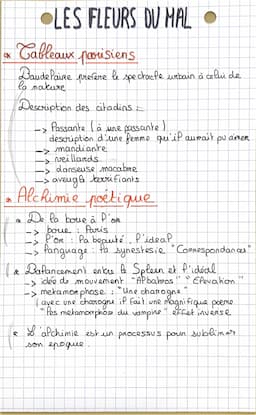 LES FLEURS DU MAL
* Tableaux parisiens
Baudelaire préfère le spectacle urbain à celui de
la nature
Description des citadins :
-> Passante (à une passante)
description d'une femme qu'il aurait pu aimer
-> mendiante
-> vieillards
-> danseuse macabre
-> aveugle terrifiants
* Alchimie poétique
* De la boue à l'or
-> boue : Paris
-> l'or : la beauté, l'idéal
-> language : la synestesie "Correspondances"
* Balancement entre le Spleen et l'idéal
-> idée de mouvement "Albatros" "Elevation"
-> métamorphose : "Une charogne"
(avec une charogne il fait une magnifique poème
"les métamorphose du vampire" effet inverse
* L'alchimie est un processus pour sublimer
son époque.